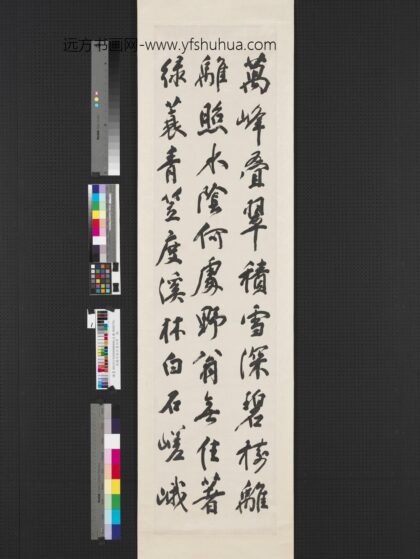 远方书画网-www.yfshuhua.com
萬峰疊翠積雪深碧樹離
離照水陰何處野翁無住著
緑蓑青笠度溪林白石嵯峨